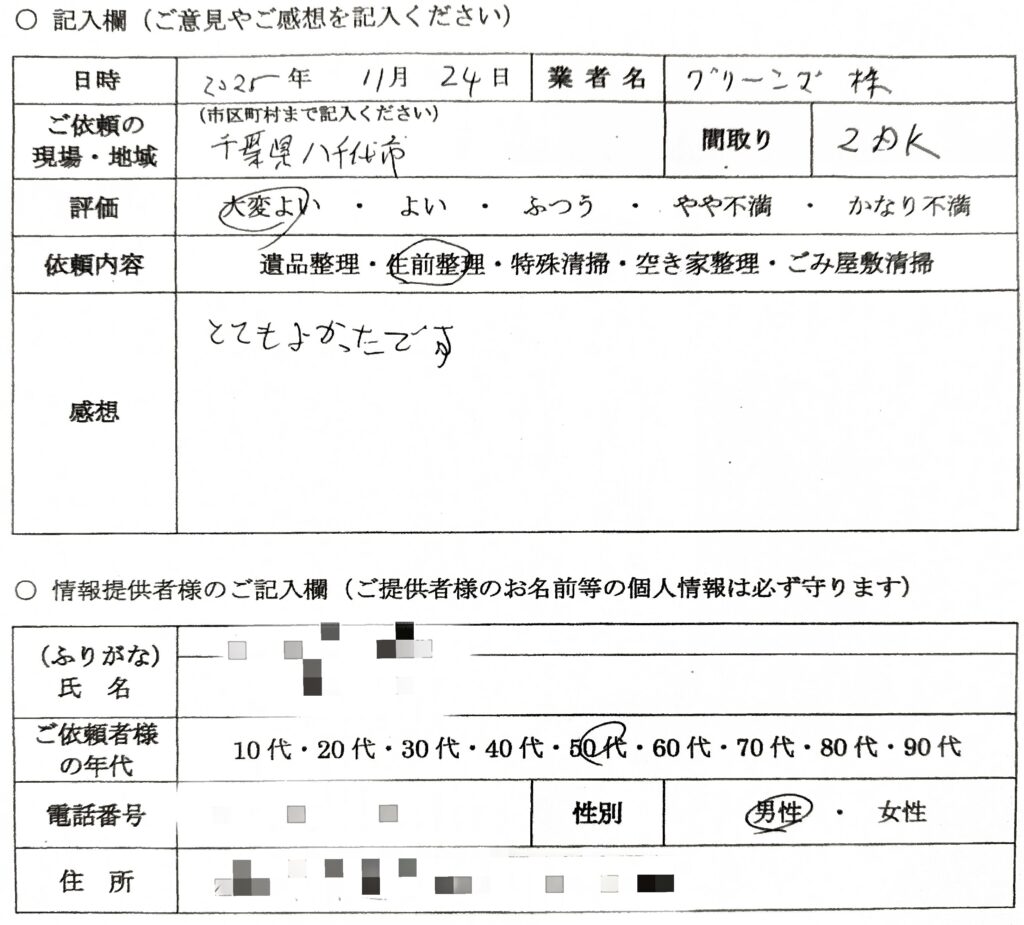 ○ 記入欄（ご意見やご感想を記入ください）
日時 2025年 11月 24日 業者名 グリーンズ 株
ご依頼の現場・地域 (市区町村まで記入ください) 千葉県八千代市 間取り 2DK
評価 大変よい ・ よい ・ ふつう ・ やや不満 ・ かなり不満
依頼内容 遺品整理・生前整理・特殊清掃・空き家整理・ごみ屋敷清掃
感想 とてもよかったです
○ 情報提供者様のご記入欄（ご提供者様のお名前等の個人情報は必ず守ります）
（ふりがな）
氏 名
ご依頼者様の年代 10代・20代・30代・40代・50代・60代・70代・80代・90代
電話番号 性別 男性 ・ 女性
住 所